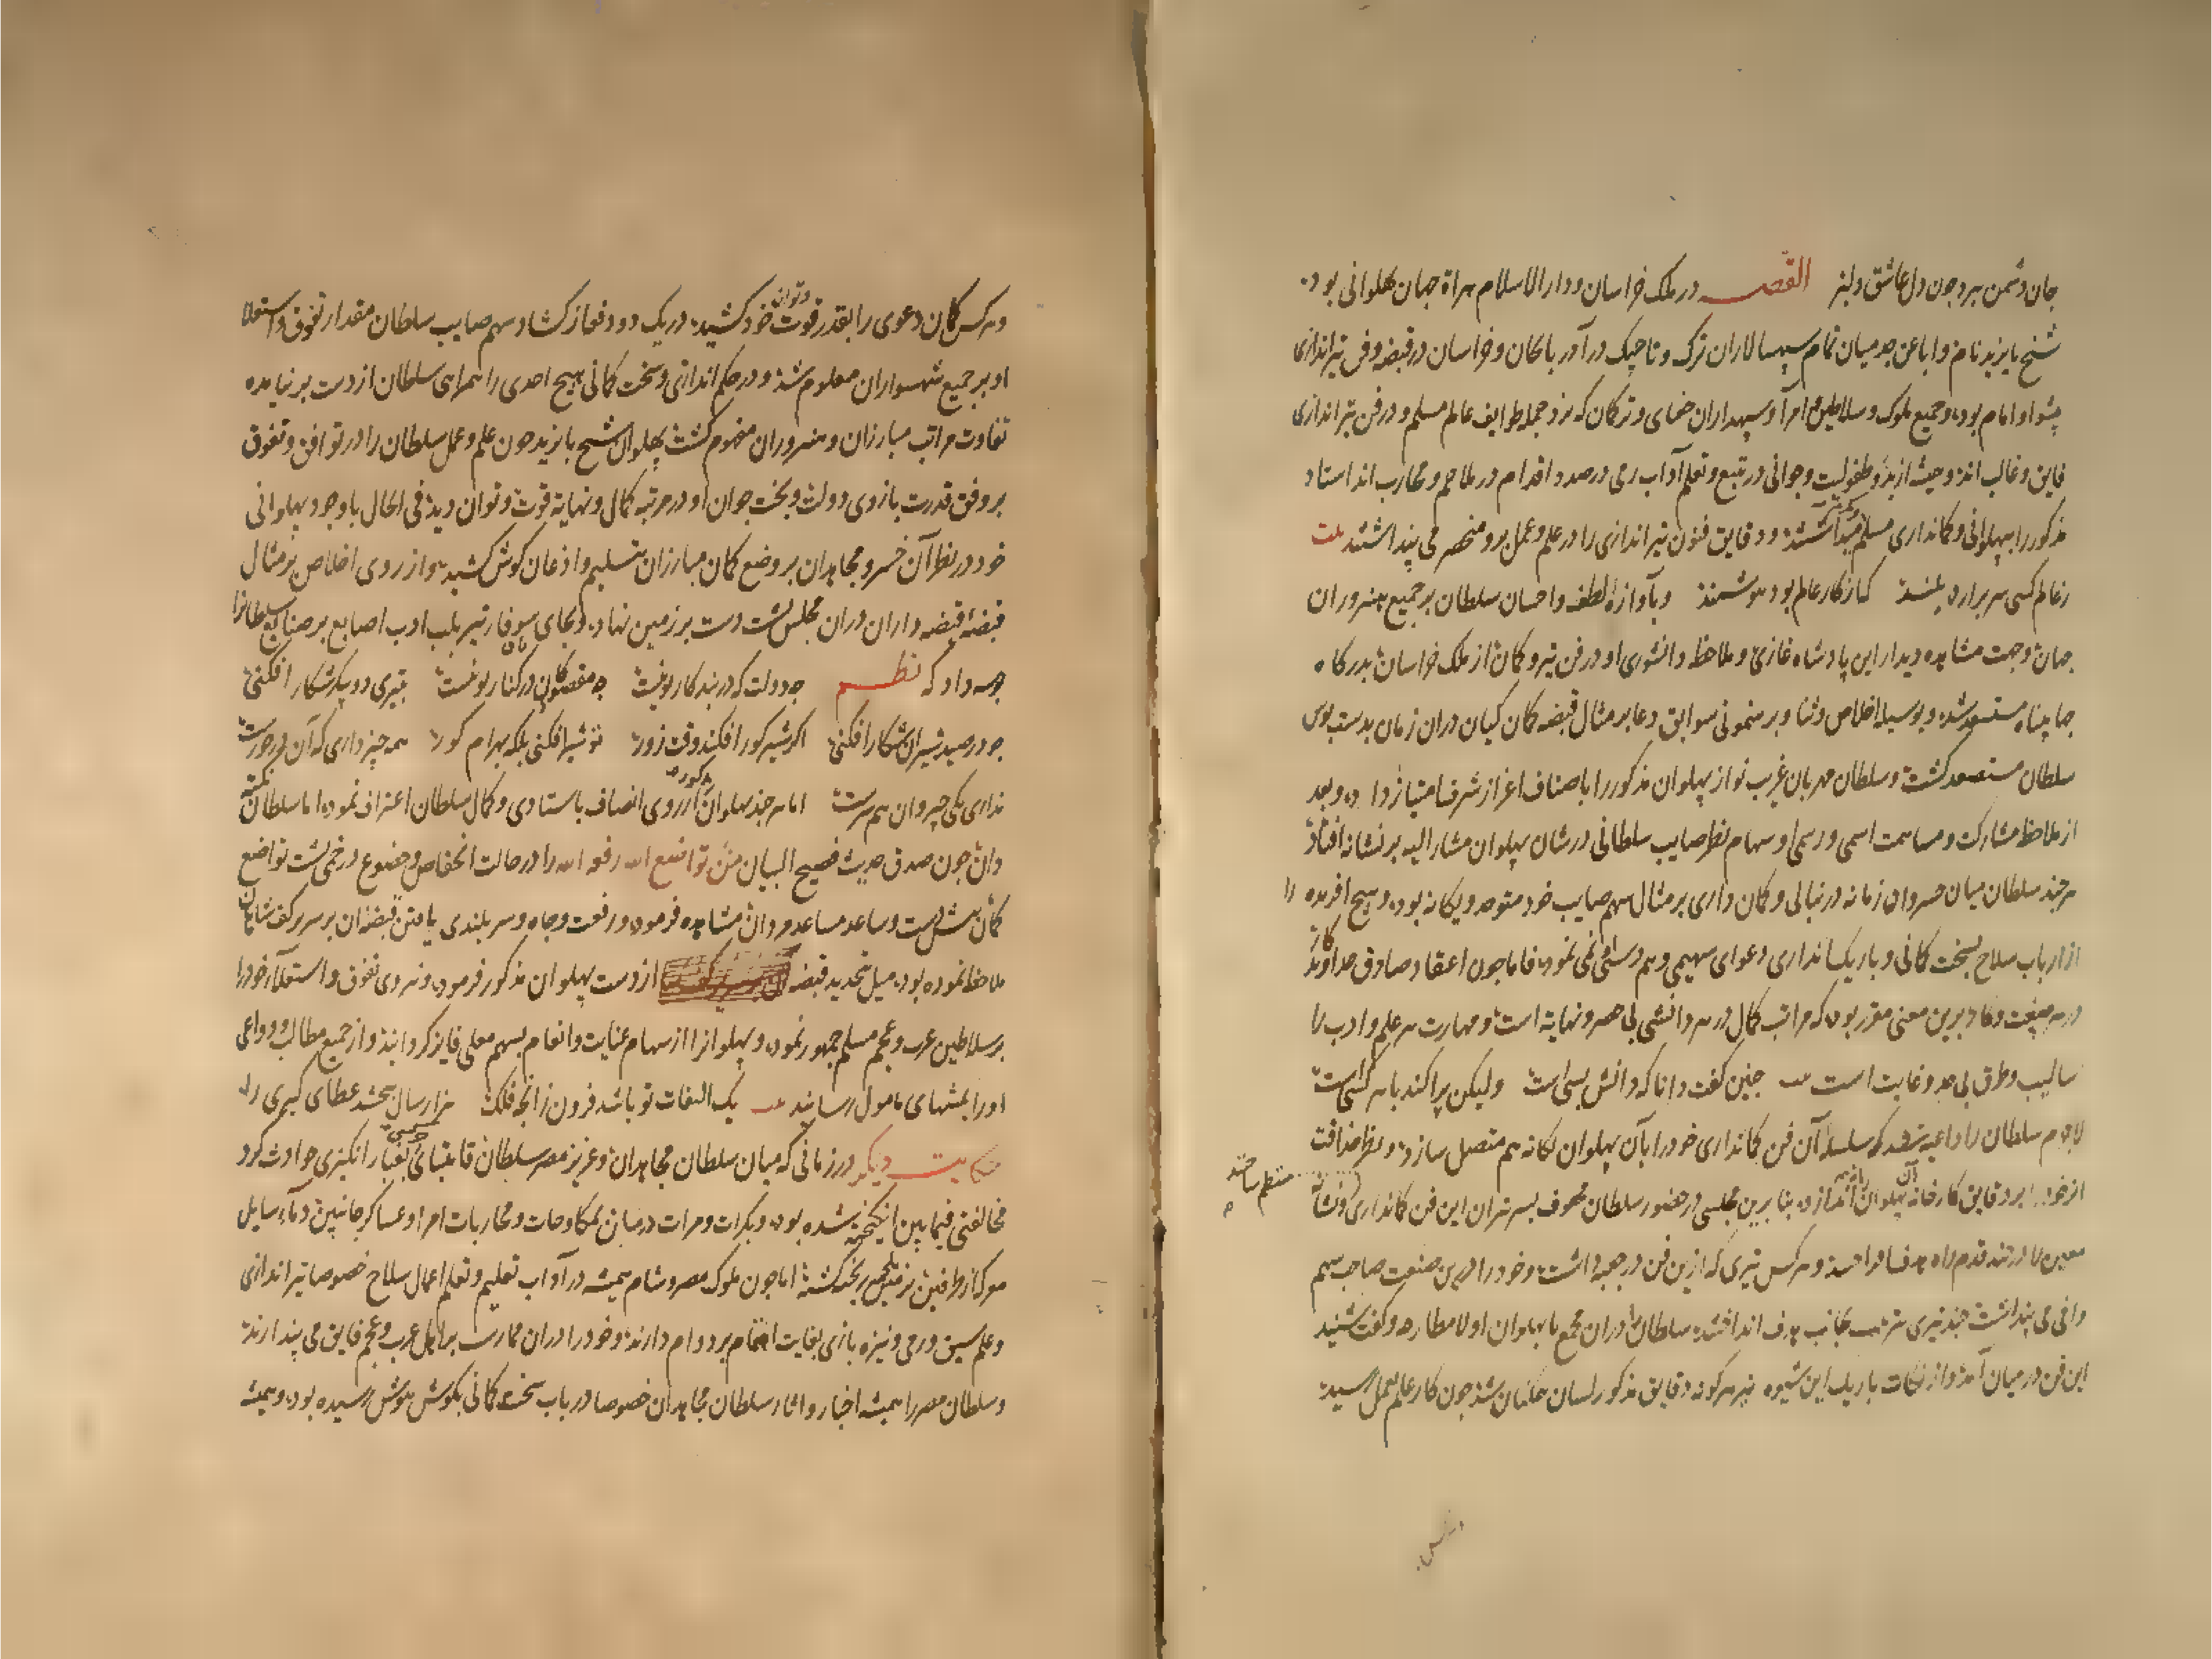 جان دشمن ببرد چون دل عاشق دلبر القصه در ملک خراسان و دار الاسلام هراة جهان پهلوانی بود
شیخ بایزید نام و ابا عن جد میان تمام سپهسالاران ترک و تاجیک در آذربایجان و خراسان در قبضه و فن تیراندازی
پیشوا و امام بوده و جمیع ملوک و سلاطین و امرا و سپهداران ختای و ترکان که نزد جمله طوایف عالم مسلم و در فن تیراندازی
فایق و غالب اند و همیشه از بدو طفولیت و جوانی در تتبع و تعلم آداب رمی در صدد اقدام در ملاحم و محارب اند استاد
مذکور را بپهلوانی و کمانداری مسلم میداشتند و دقایق فنون تیراندازی را در علم و عمل برو منحصر می پنداشتند بیت
ز عالم کسی سر برآرد بلند که از کار عالم بود هوشمند و بآوازه لطف و احسان سلطان بر جمیع هنروران
جهان و جهت مشاهده دیدار این پادشاه غازی و ملاحظه دانشوری او در فن تیر و کمان از ملک خراسان بدرگاه
جهان پناه مستسعد شده و بوسیله اخلاص و ثنا و برهنمونی سوابق دعا بر مثال قبضه کمان کیان دران زمان بدست بوس
سلطان مستسعد گشت و سلطان مهربان غریب نواز پهلوان مذکور را باصناف اعزاز شرف امتیاز داده و بعد
از ملاحظه مشارکت و مساهمت اسمی و رسمی او سهام نظر صایب سلطانی در شان پهلوان مشار الیه بر نشانه افتاد
هر چند سلطان میان خسروان زمانه در نبالی و کمان داری بر مثال سهم صایب خود متوحد و یگانه بوده و هیچ آفریده را
از ارباب سلاح بسخت کمانی و باریک اندازی دعوای سهیمی و هم دستی نمی نمود فاما چون اعتقاد صادق خداوند کار
در هر صنعت و کار برین معنی مقرر بود که مراتب کمال در هر دانشی بی حصر و نهایة است و مهارت هر علم و ادب را
سالیب و طرق بی حد و غایت است بیت چنین گفت دانا که دانش بسی است ولیکن پراکنده با هر کسی است
لاجرم سلطان را داعیه شد که سلسله آن فن کمانداری خود را بآن پهلوان یگانه هم متصل سازد و نظر حذاقت
از خود را بر دقایق کارخانه آن پهلوان اندازد بنا برین مجلسی در حضور سلطان محفوف بسر تیران این فن کمانداری و نشانه
منتظم ساختند
معین قدم راه هدف و هر کس تیری که ازین فن در جعبه داشت و خود را درین صنعت صاحب سهم
وافی می پنداشت چند تیری بترتیب بجانب هدف انداختند سلطان را دران مجمع با پهلوان اولا مطارحه و گفت شنید
این فن در میان آمد و از نکات باریک این شیوه نیز هر گونه دقایق مذکور لسان حکمان شد چون کار علم بعمل رسید
و هر کس کمان دعوی را بقدر قوت و توان خود کشید در یک دو دفعه از گشاد سهم صایب سلطان مقدار تفوق و استعلا
او بر جمیع شهسواران معلوم شد و در حکم اندازی و سخت کمانی هیچ احدی را همراهی سلطان از دست بر نیامده
تفاوت مراتب مبارزان و هنروران مفهوم گشت پهلوان شیخ بایزید چون علم و عمل سلطان را در توافق و تفوق
بر وفق قدرت بازوی دولت و بخت جوان او در مرتبه کمال و نهایة قوت و توان دید فی الحال با وجود پهلوانی
خود در نظر آن خسرو مجاهدان بر وضع کمان مبارزان بتسلیم و اذعان گوش کشید و از روی اخلاص بر مثال
قبضه قبضه داران دران مجلس پشت دست بر زمین نهاد و بجای سوفار تیر بلب ادب اصابع بر صنایع سلطانرا
بوسه داد که نظم چه دولت که در بند کار تو نیست چه مقصود کان در کنار تو نیست بتیری دو پیکر شکار افکنی
چو در صید شیران شکار افکنی اگر شیر گور افکند وقت زور تو شیر افکنی بلکه بهرام گور همه چیز داری که آن در خورست
نداری یکی چیز و آن همسرست اما هر چند پهلوان مذکور از روی انصاف باستادی و کمال سلطان اعتراف نموده اما سلطان نکته
دان چون صدق حدیث فصیح البیان من تواضع لله رفعه الله را در حالت انخفاض و خضوع در خمی پشت تواضع
کمان پیش دست و ساعد مساعد مردان مشاهده فرموده و رفعت و جاه و سربلندی یافتن قبضه آن بر سر کف شاهان
ملاحظه نموده بود میل تجدید قبضه از دست پهلوان مذکور فرموده و نردی تفوق و استعلاء خود را
بر سلاطین عرب و عجم مسلم جمهور نموده و پهلوانرا از سهام عنایت و انعام بسهم معلی فایز گردانید و از جمیع مطالب و دواعی
او را بمنتهای مامول رسانید بیت یک التفات تو باشد فزون ز آنچه فلک هزار سال ببخشد عطای کبری را
حکایت دیگر در زمانی که میان سلطان مجاهدان و عزیز مصر سلطان قایتبای چرکسی بغبار انگیزی حوادث گرد
مخالفتی فیما بین انگیخته شده بود و بکرات و مرات در میان بمکاوحات و محاربات امرا و عساکر جانبین دماء سایل
معرکه از طرفین نیز ریخته گشته اما چون ملوک مصر و شام همیشه در آداب تعلیم و تعلم اعمال سلاح خصوصا تیراندازی
و علم سیف و رمی و نیزه بازی بغایت اهتمام بر دوام دارند و خود را دران ممارست بر اهل عرب و عجم فایق می پندارند
و سلطان مصر را همیشه اخبار و آثار سلطان مجاهدان خصوصا در باب سخت کمانی بگوش هوش رسیده بود و همیشه